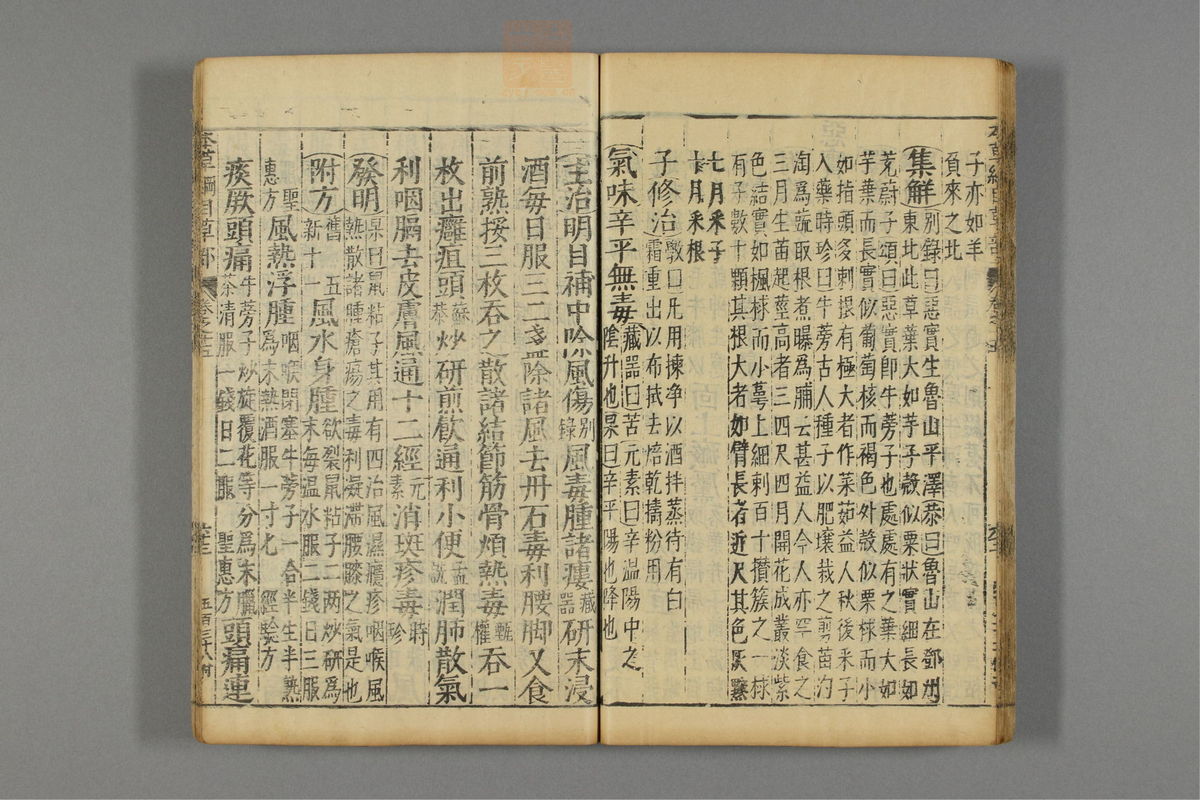 子亦如羊
負來之北
集解別錄曰惡實生魯山平澤恭曰魯山在鄧州
東北此草葉大如芋子殼似栗狀實細長如
茺蔚子頌曰惡實即牛蒡子也處處有之葉大如
芋葉而長實似葡萄核而褐色外殼似栗梂而小
如指頭多刺根有極大者作菜茹益人秋後采子
入藥時珍曰牛蒡古人種子以肥壤栽之剪苗汋
淘為蔬取根煮曝為脯云甚益人今人亦罕食之
三月生苗起莖高者三四尺四月開花成叢淡紫
色結實如楓梂而小萼上細刺百十攢簇之一梂
有子數十顆其根大者如臂長者近尺其色灰黲
七月采子
十月采根
子修治斆曰凡用揀净以酒拌蒸待有白
霜重出以布拭去焙乾擣粉用
氣味辛平無毒藏器曰苦元素曰辛溫陽中之
陰升也杲曰辛平陽也降也
主治明目補中除風傷別錄風毒腫諸瘻藏器研末浸
酒每日服三二盞除諸風去丹石毒利腰脚又食
前熟挼三枚吞之散諸結節筋骨煩熱毒甄權吞一
枚出癰疽頭蘇恭炒研煎飲通利小便孟詵潤肺散氣
利咽膈去皮膚風通十二經元素消斑疹毒時珍
發明杲曰鼠粘子其用有四治風濕癮疹咽喉風
熱散諸腫瘡瘍之毒利凝滯腰膝之氣是也
附方舊五新十一風水身腫欲裂鼠粘子二兩炒研為
末每溫水服二錢日三服
聖惠方風熱浮腫咽喉閉塞牛蒡子一合半生半熟
為末熱酒服一寸匕經驗方
痰厥頭痛牛蒡子炒旋覆花等分為末臘
茶清服一錢日二服聖惠方頭痛連
本草綱目草部